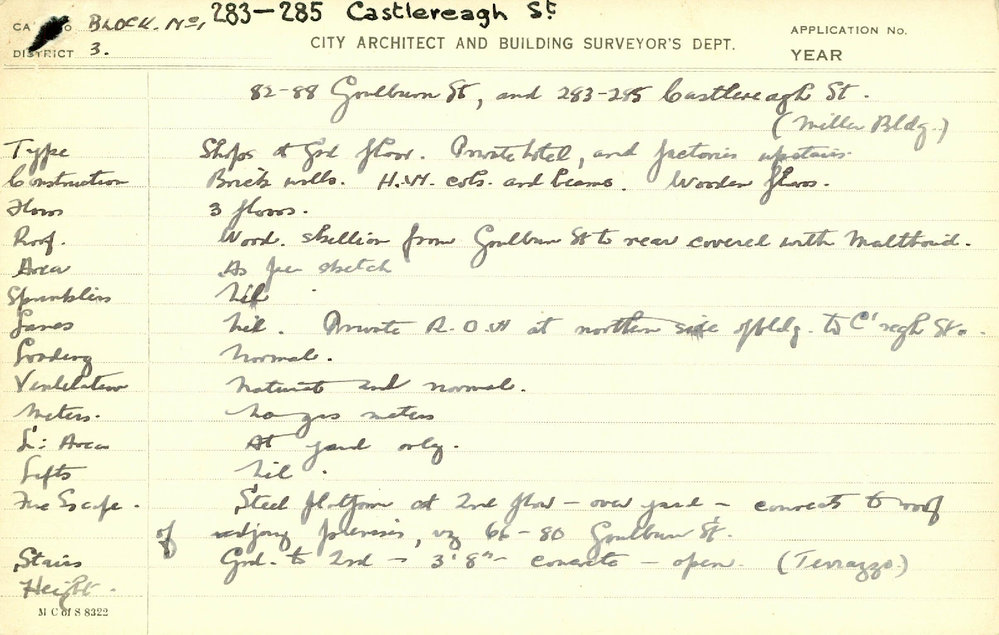 283-285 Castlereagh St.
CA No BLOCK. No, 
DISTRICT 3.
CITY ARCHITECT AND BUILDING SURVEYOR'S DEPT.
APPLICATION No.
YEAR
82-88 Goulburn St, and 283-285 Castlereagh St.
(Miller Bldg.)
Type Shops at Grd floor. Private hotel, and factories upstairs.
Construction Brick walls. H.W. cols. and beams. Wooden floors.
Floors 3 floors.
Roof. Wood. skellion from Goulburn St to rear covered with Malthoid.
Area As per sketch
Sprinklers Nil
Lanes Nil. Private R.O.W at northern side of bldg. to C'reagh St.
Loading Normal.
Ventilation Natural and normal.
Meters. No gas meters
L: Area At yard only.
Lifts Nil.
Fire Escape. Steel platform at 2nd floor - over yard - connects to roof
of adjoing premises, viz 66-80 Goulburn St.
Stairs Grd. to 2nd - 3'8"- concrete - open. (Terrazzo.)
Height.
M C of S 8322